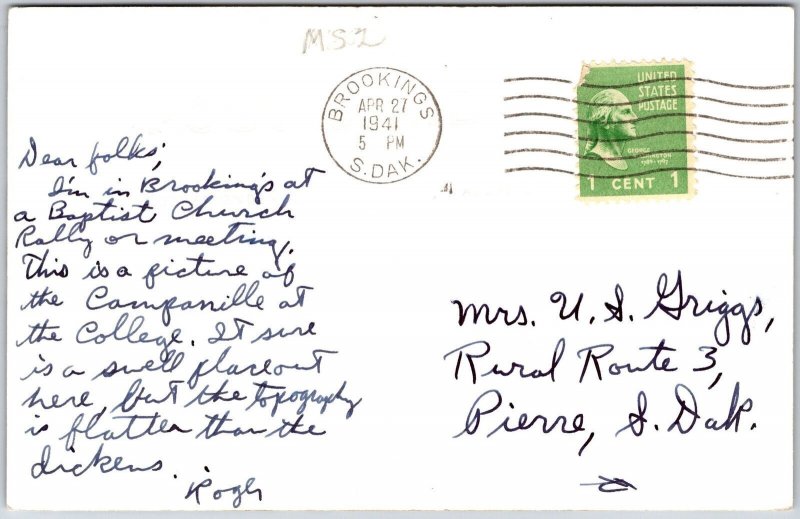 MS2
BROOKINGS
APR 27
1941
5 PM
S. DAK.
UNITED
STATES
POSTAGE
GEORGE
WASHINGTON
1789-1797
1 CENT 1
Dear folks;
I'm in Brooking's at
a Baptist Church
Rally or meeting.
This is a picture of
the Campanille at
the College. It sure
is a swell place out
here, but the topography
is flatter than the
dickens.
Mrs. U. S. Griggs,
Rural Route 3,
Pierre, S. Dak.